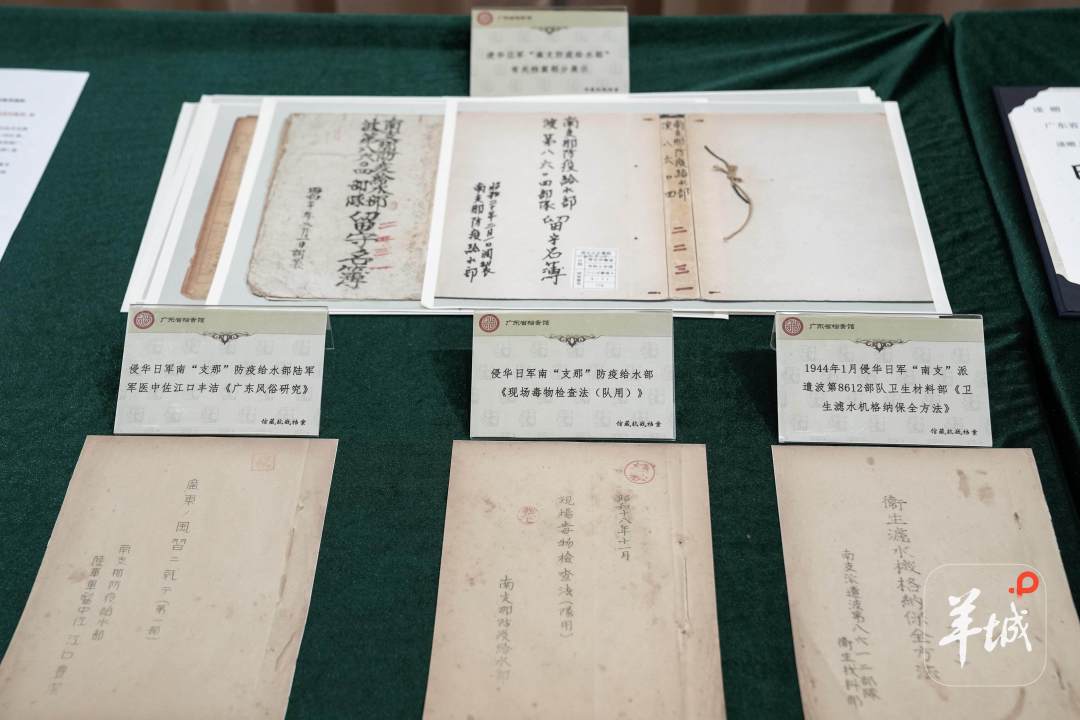 广东省档案馆
侵华日军“南支防疫给水部”
有关档案部分展示
南支那防疫給水部
波第八六〇四部隊
留守名簿
南支那防疫給水部
波第八六〇四部隊 留守名簿
昭和二十年一月一日調製
南支那防疫給水部
南支那防疫給水部
波八六〇四
二二三一
广东省档案馆
侵华日军南“支那”防疫给水部陆军
军医中佐江口丰洁《广东风俗研究》
馆藏抗战档案
广东省档案馆
侵华日军南“支那”防疫给水部
《现场毒物检查法（队用）》
馆藏抗战档案
广东省档案馆
1944年1月侵华日军“南支”派
遣波第8612部队卫生材料部《卫
生滤水机格纳保全方法》
馆藏抗战档案
廣東ノ風習ニ就テ(第一部)
南支那防疫給水部
陸軍軍醫中佐 江口豊
昭和十八年十一月
現場毒物檢查法(隊用)
南支那防疫給水部
衛生濾水機格納保全方法
南支派遣波第八六一二部隊
衛生材料部
羊城
广东省